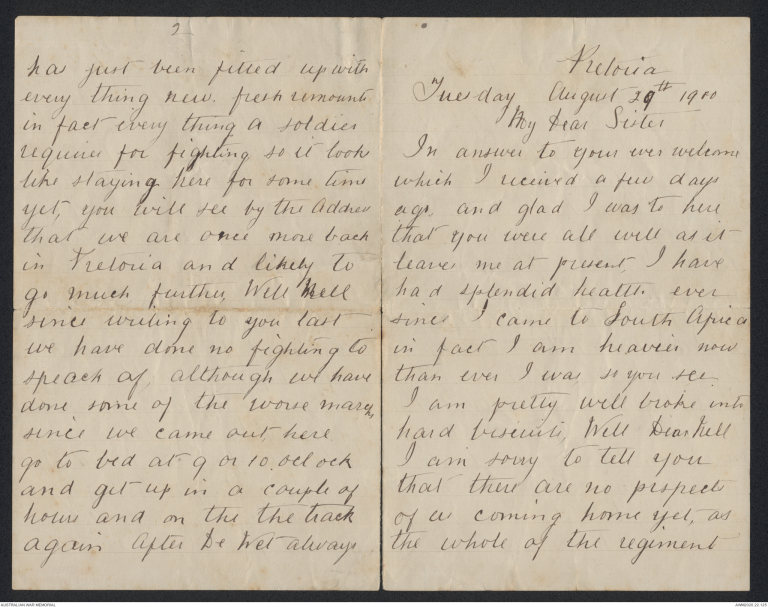 Pretoria
Tuesday August 29th 1900
My Dear Sister
In answer to your ever welcome
which I received a few days
ago, and glad I was to here
that you were all well as it
leaves me at present, I have
had splendid health ever
since I came to South Africa
in fact I am heavier now
than ever I was so you see
I am pretty well broke into
hard biscuits, Well Dear Nell
I am sorry to tell you
that there are no prospect
of us coming home yet, as
the whole of the regiment
2
has just been fitted up with
every thing new. fresh remounts
in fact every thing a soldier
requires for fighting so it look
like staying here for some time
yet, you will see by the Address
that we are once more back
in Pretoria and likely to
go much further, Well Nell
since writing to you last
we have done no fighting to
speack of, although we have
done some of the worse marchs
since we came out here
go to bed at 9 or 10. oclock
and get up in a couple of
hours and on the the track
again After De Wet always
AUSTRALIAN WAR MEMORIAL